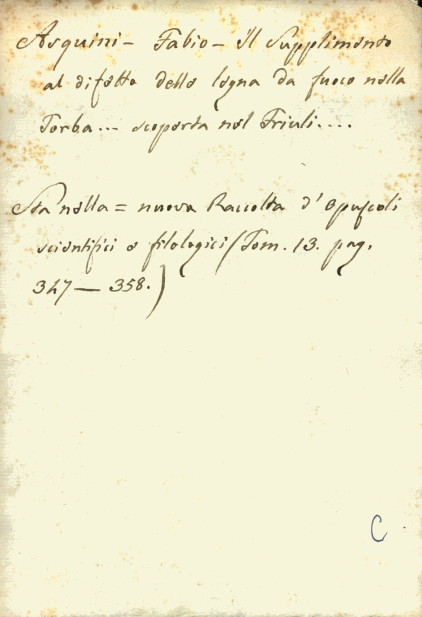 Asquini - Fabio - il Supplimento
al difetto delle legna da fuoco nella
Torba... scoperta nel Friuli....
Sta nella = nuova Raccolta d'Opuscoli
scientifici e filologici (Tom. 13. pag.
347 — 358.)
C